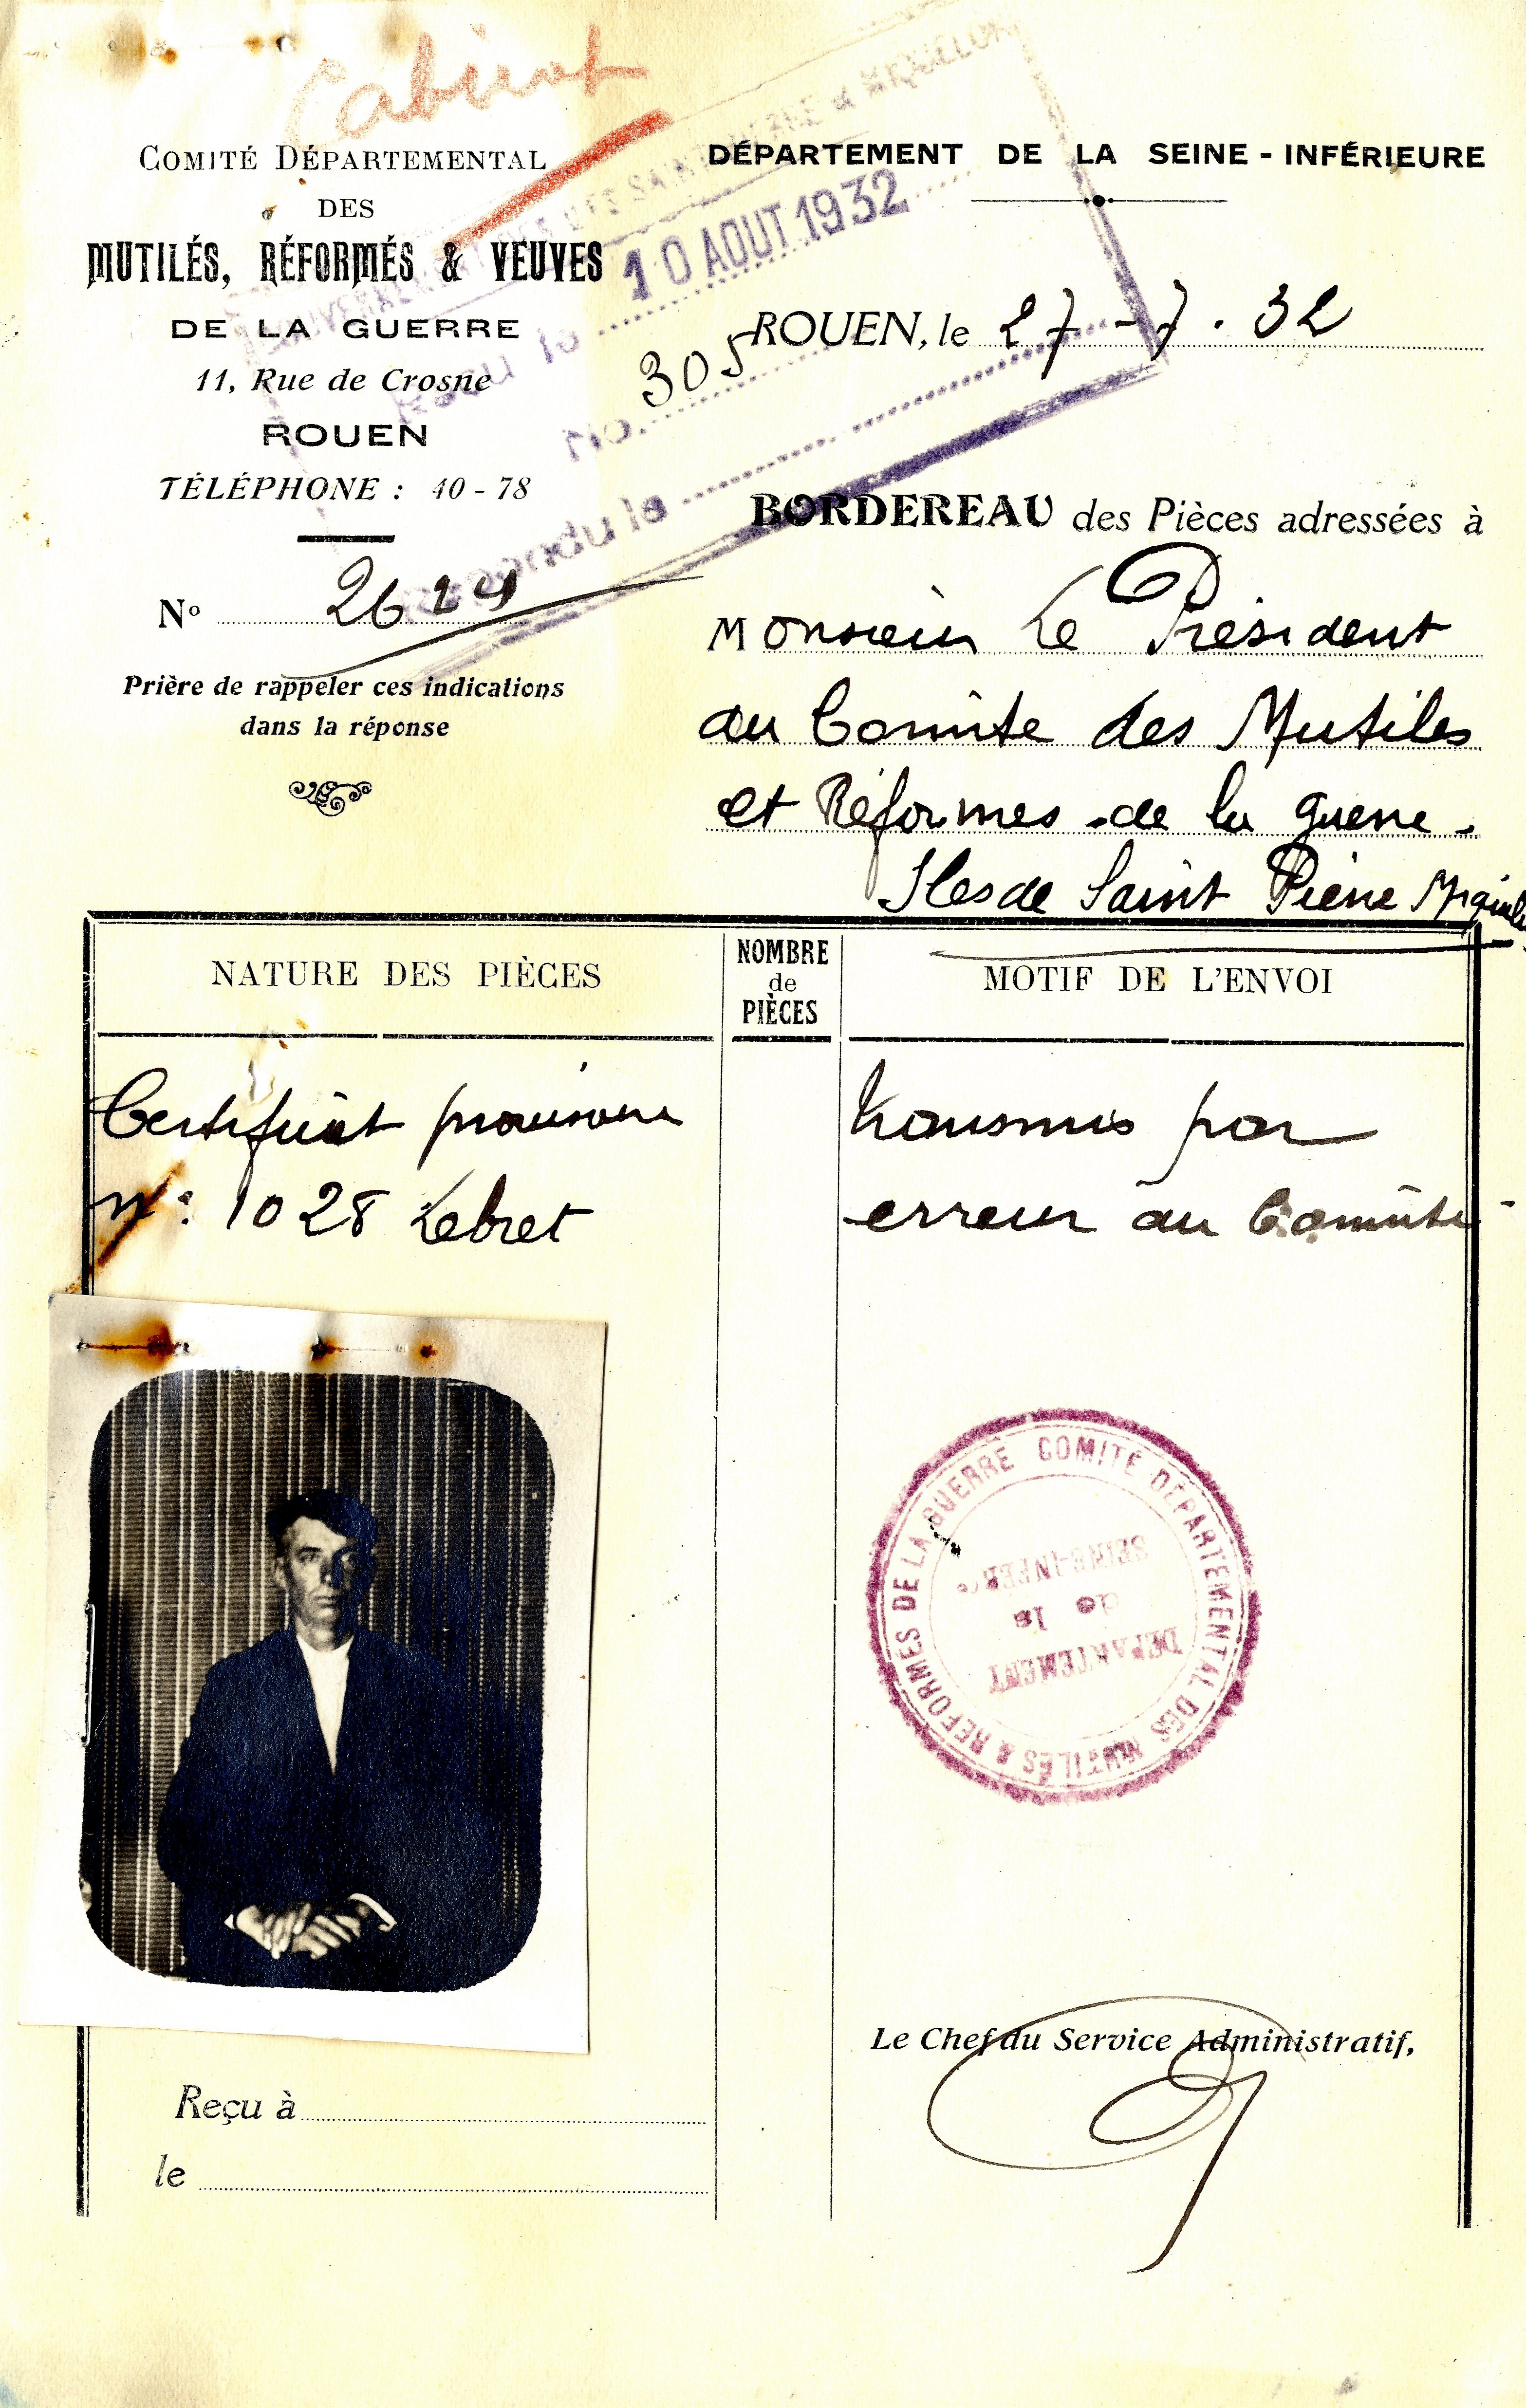 Cabinet
COMITÉ DÉPARTEMENTAL
DES
MUTILÉS, RÉFORMÉS & VEUVES
DE LA GUERRE
11, Rue de Crosne
ROUEN
TÉLÉPHONE : 40-78
No 2624
Prière de rappeler ces indications
dans la réponse
SAINT-PIERRE & MIQUELON
10 AOUT 1932
No. 305
Répondu le
DÉPARTEMENT DE LA SEINE-INFÉRIEURE
ROUEN, le 27-7.32
BORDEREAU des Pièces adressées à
Monsieur Le Président
du Comite des Mutiles
et Réformes de la guerre.
Iles de Saint Pierre Miquelon
NATURE DES PIÈCES
NOMBRE
de
PIÈCES
MOTIF DE L'ENVOI
Certificat provisoire
n°: 1028 Lebret
transmis par
erreur au Comité
COMITÉ DÉPARTEMENTAL DES MUTILÉS & REFORMES DE LA GUERRE
DEPARTEMENT
de la
SEINE-INFERre
Le Chef du Service Administratif,
Reçu à
le